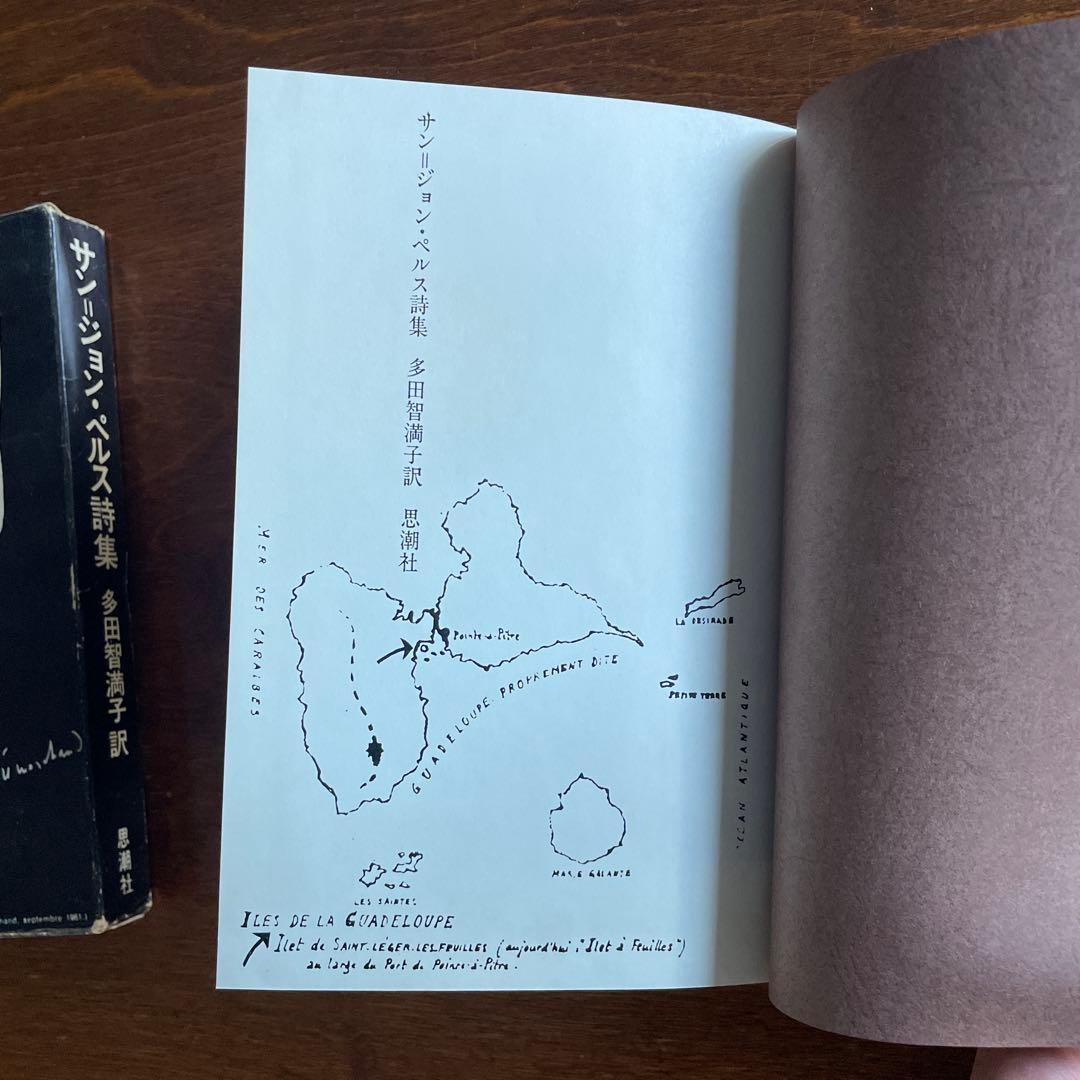 サン=ジョン・ペルス詩集 多田智満子訳 思潮社
hand, septembre 1961.)
サン=ジョン・ペルス詩集 多田智満子訳 思潮社
MER DES CARAIBES
Pointe-à-Pitre
GUADELOUPE PROPREMENT DITE
LA DESIRADE
PETITE TERRE
OCEAN ATLANTIQUE
MARIE GALANTE
LES SAINTES
ILES DE LA GUADELOUPE
Ilet de SAINT-LÉGER-LES-FEUILLES (aujourd'hui : "Ilet à Feuilles")
au large du Port de Pointe-à-Pitre.